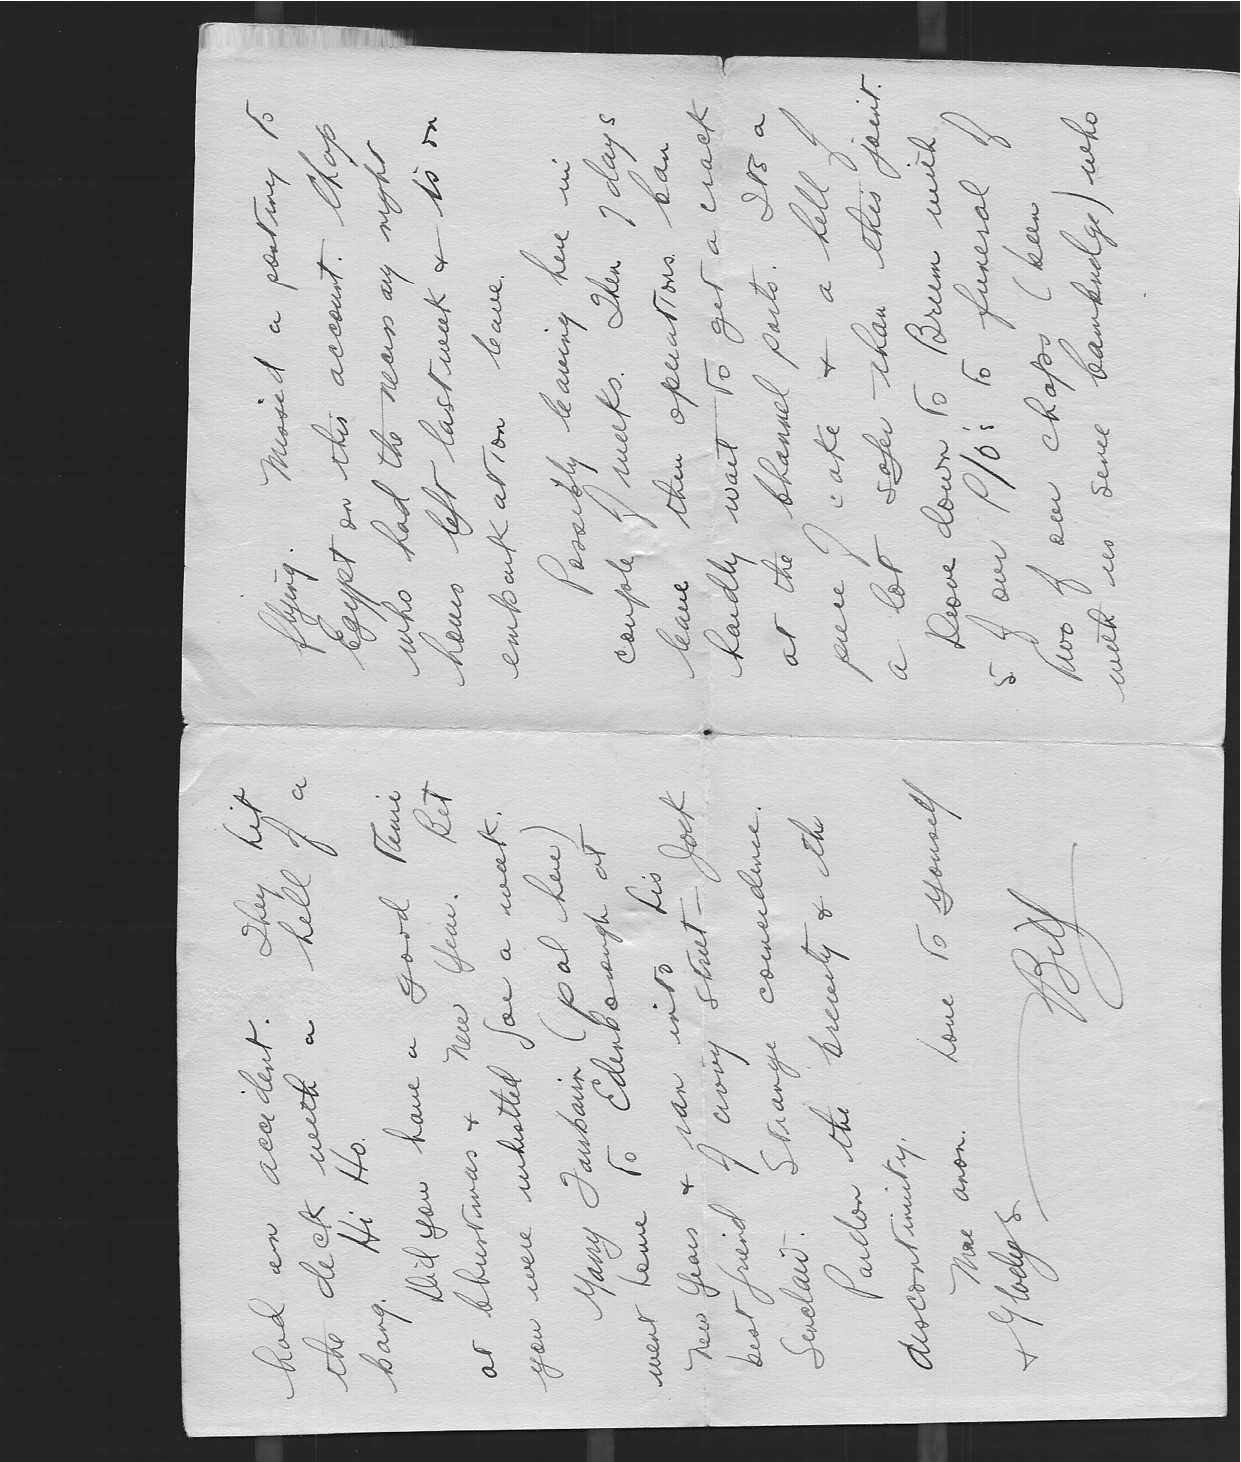 flying. Missed a posting to
Egypt on this account. Chap
who had the necessary night
hours left last week & is on
embarkation leave.
Possibly leaving here in
couple of weeks. Then 7 days
leave then operations. Can
hardly wait to get a crack
at the Channel ports. Its a
piece of cake & a hell of
a lot safer than this joint.
Drove down to Brum with
5 of our P/O's to funeral of
two of our chaps (been
with us since Cambridge) who
had an accident. They hit
the deck with a hell of a
bang. Hi Ho.
Did you have a good time
at Christmas & New Year. Bet
you were whistled for a week.
Garry Fairbairn (pal here)
went home to Edenborough at
New Years & ran into his
best friend of civvy street — Jock
Sinclair. Strange coincidence.
Pardon the brevity & the
discontinuity.
More anon. Love to yourself
& Gladys
Bill